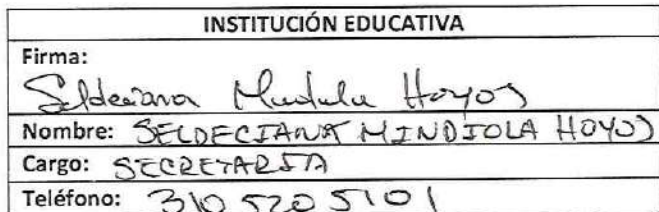 INSTITUCIÓN EDUCATIVA
Firma:
Seldeciana Mindiola Hoyos
Nombre: SELDECIANA MINDIOLA HOYOS
Cargo: SECRETARIA
Teléfono: 310 520 5101